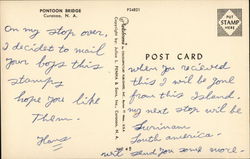 PONTOON BRIDGE
Curacao, N. A.
P34821
PUT
STAMP
HERE
POST CARD
On my stop over,
I decidet to mail
your boys this
stamps
hope you like
Them.
Hans
when you received
this I will be gone
from this Island.
my next stop will be
Surinam
South america.
will send you some more.